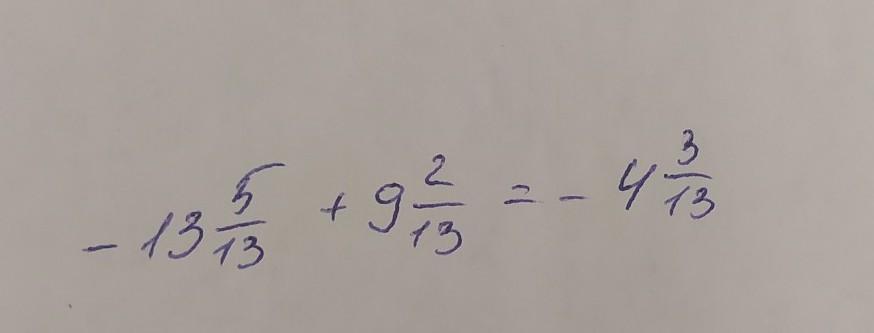 - 13 5/13 + 9 2/13 = - 4 3/13